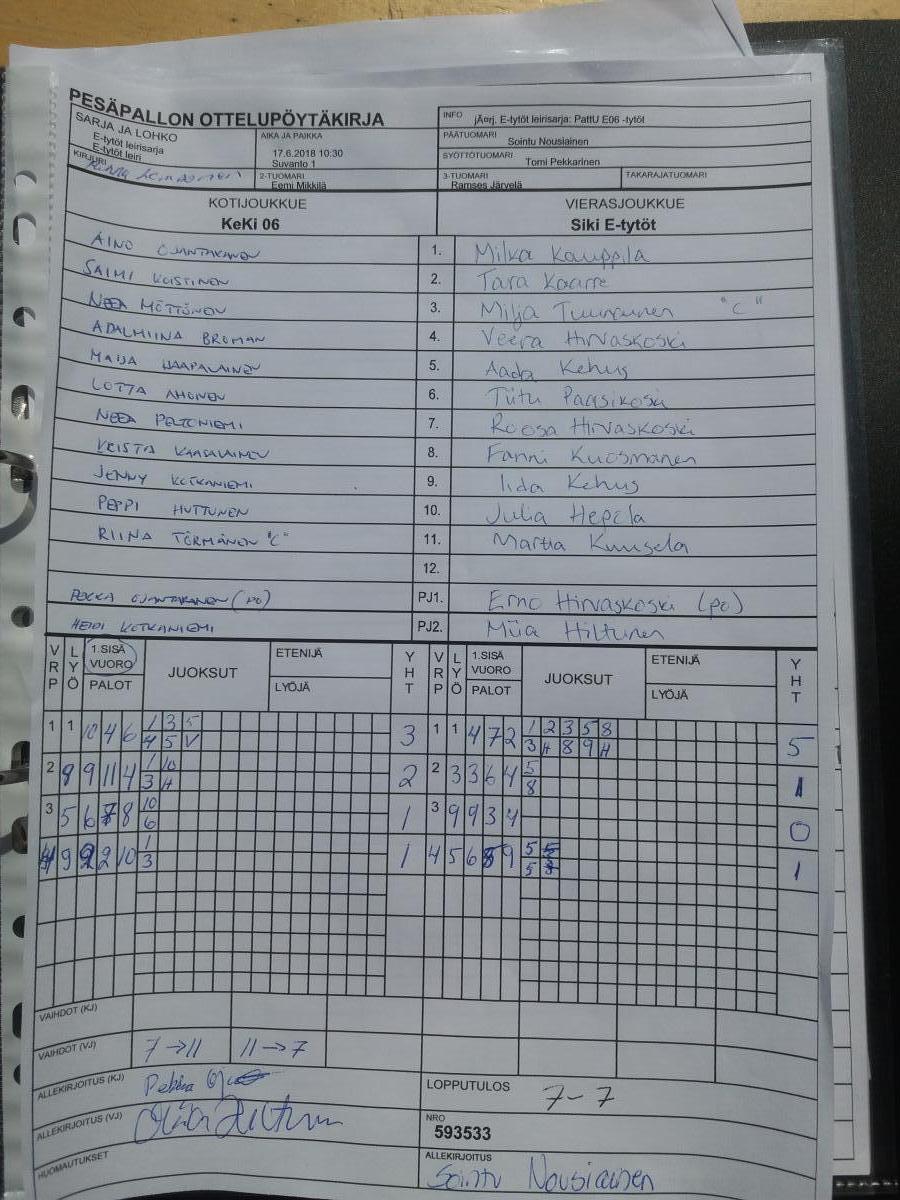 PESÄPALLON OTTELUPÖYTÄKIRJA
SARJA JA LOHKO
E-tytöt leirisarja
E-tytöt leiri
AIKA JA PAIKKA
17.6.2018 10:30
Suvanto 1
INFO jÃ¤rj. E-tytöt leirisarja: PattU E06 -tytöt
PÄÄTUOMARI
Sointu Nousiainen
SYÖTTÖTUOMARI
Tomi Pekkarinen
KIRJURI
2-TUOMARI
Eemi Mikkilä
3-TUOMARI
Ramses Järvelä
TAKARAJATUOMARI
KOTIJOUKKUE VIERASJOUKKUE
KeKi 06 Siki E-tytöt
AINO OJANTAKANEN 1. Milka Kauppila
SAIMI KOISTINEN 2. Tara Kaarre
NEEA MÖTTÖNEN 3. Milja Tuunainen "C"
ADALMIINA BROMAN 4. Veera Hirvaskoski
MAIJA HAAPALAINEN 5. Aada Kehus
LOTTA AHONEN 6. Tiitu Paasikoski
NEEA PELTONIEMI 7. Roosa Hirvaskoski
KRISTA KAASALAINEN 8. Fanni Kuosmanen
JENNY KOTKANIEMI 9. Iida Kehus
PEPPI HUTTUNEN 10. Julia Hepola
RIINA TÖRMÄNEN "C" 11. Martta Kuusela
12.
PEKKA OJANTAKANEN (PO) PJ1. Erno Hirvaskoski (po)
HEIDI KOTKANIEMI PJ2. Miia Hiltunen
VRP LYÖ 1.SISÄ VUORO PALOT JUOKSUT ETENIJÄ LYÖJÄ YHT VRP LYÖ 1.SISÄ VUORO PALOT JUOKSUT ETENIJÄ LYÖJÄ YHT
1 1 10 4 6 1 3 5 3 1 1 4 7 2 1 2 3 5 8 5
4 5 V 3 H 8 9 H
2 9 9 11 4 1 10 2 2 3 3 6 4 5 1
3 H 8
3 5 6 7 8 10 1 3 9 9 3 4 0
6
4 9 9 2 10 1 1 4 5 6 8 9 5 1
3 5
VAIHDOT (KJ)
VAIHDOT (VJ) 7→11 11→7
ALLEKIRJOITUS (KJ) Pekka
LOPPUTULOS 7-7
ALLEKIRJOITUS (VJ) Miia Hiltunen
NRO
593533
HUOMAUTUKSET
ALLEKIRJOITUS
Sointu Nousiainen